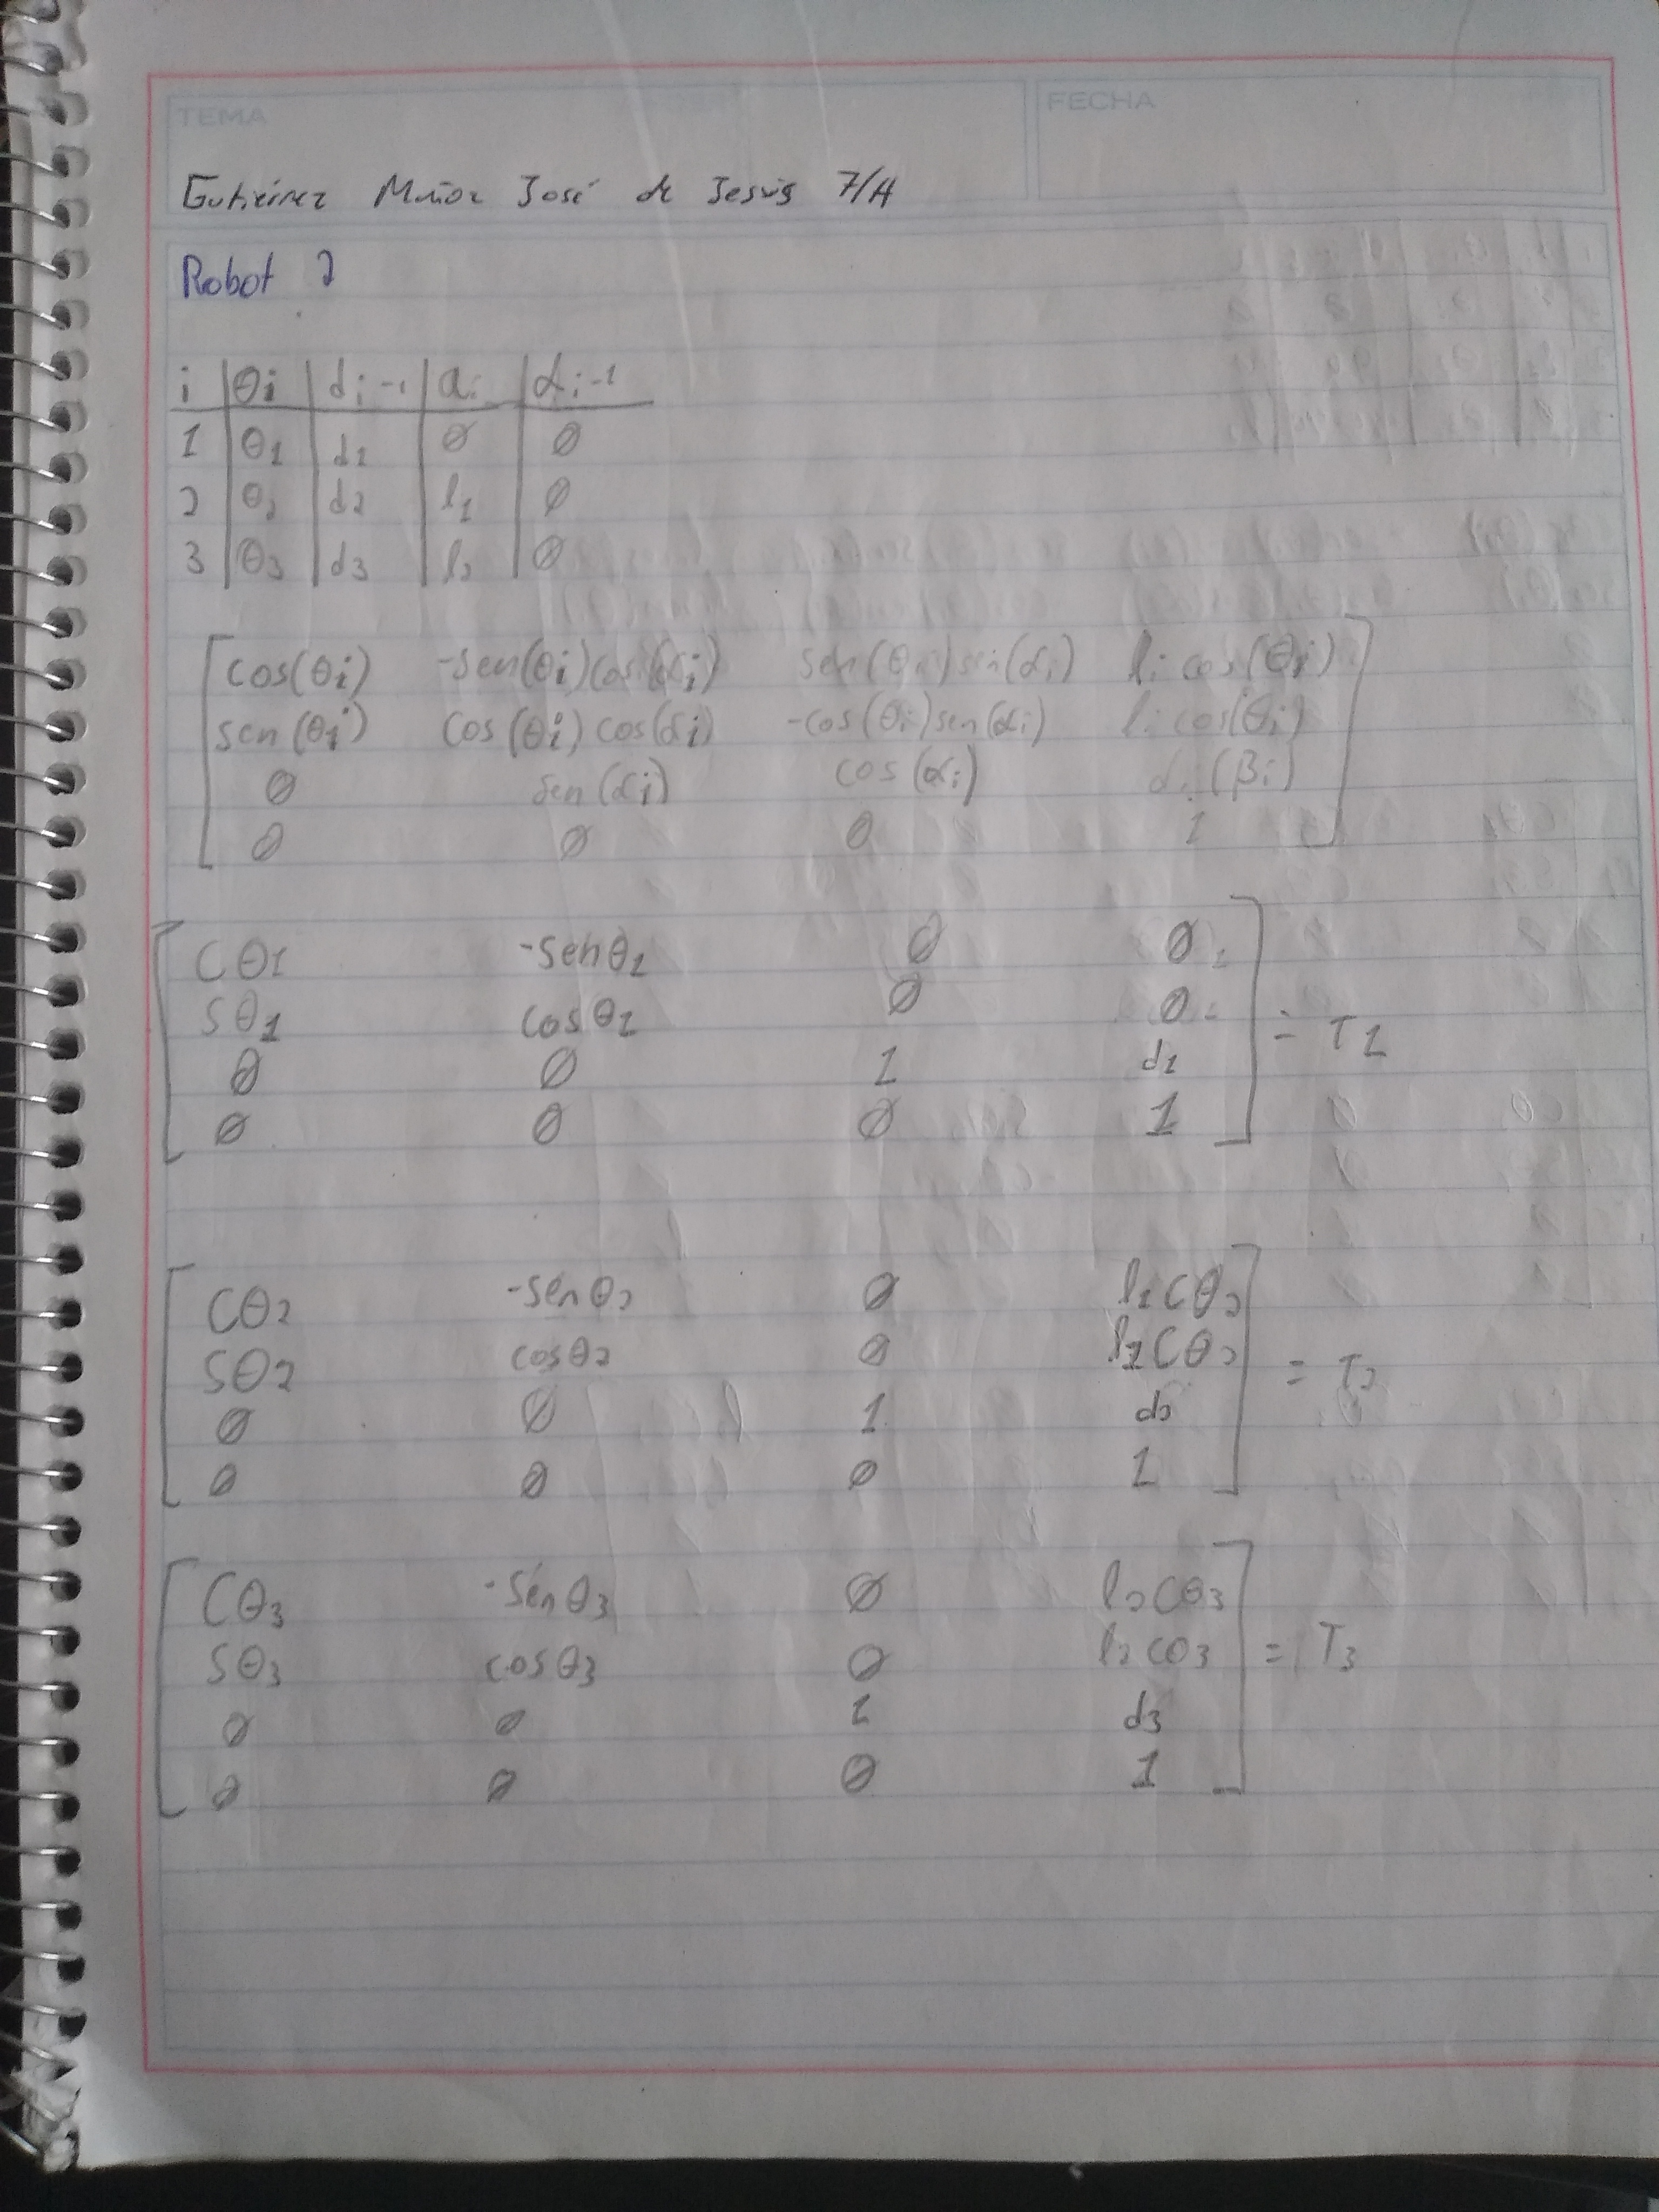 TEMA
FECHA
Gutiérrez Muñoz José de Jesús 7/A
Robot 2
i | θi | di-1 | ai | αi-1
1 | θ1 | d1 | 0 | 0
2 | θ2 | d2 | l1 | 0
3 | θ3 | d3 | l2 | 0
cos(θi) -sen(θi)cos(αi) sen(θi)sen(αi) li cos(θi)
sen(θi) cos(θi)cos(αi) -cos(θi)sen(αi) li cos(θi)
0 sen(αi) cos(αi) di(βi)
0 0 0 1
Cθ1 -senθ1 0 0
Sθ1 cosθ1 0 0 = T1
0 0 1 d1
0 0 0 1
Cθ2 -senθ2 0 l1Cθ2
Sθ2 cosθ2 0 l1Cθ2 = T2
0 0 1 d2
0 0 0 1
Cθ3 -senθ3 0 l2Cθ3
Sθ3 cosθ3 0 l2Cθ3 = T3
0 0 1 d3
0 0 0 1